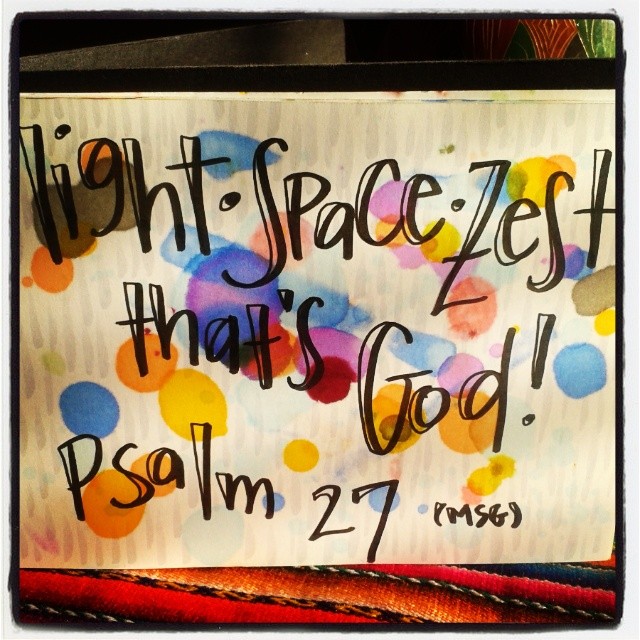 light · Space · Zest
that's God!
Psalm 27 (MSG)